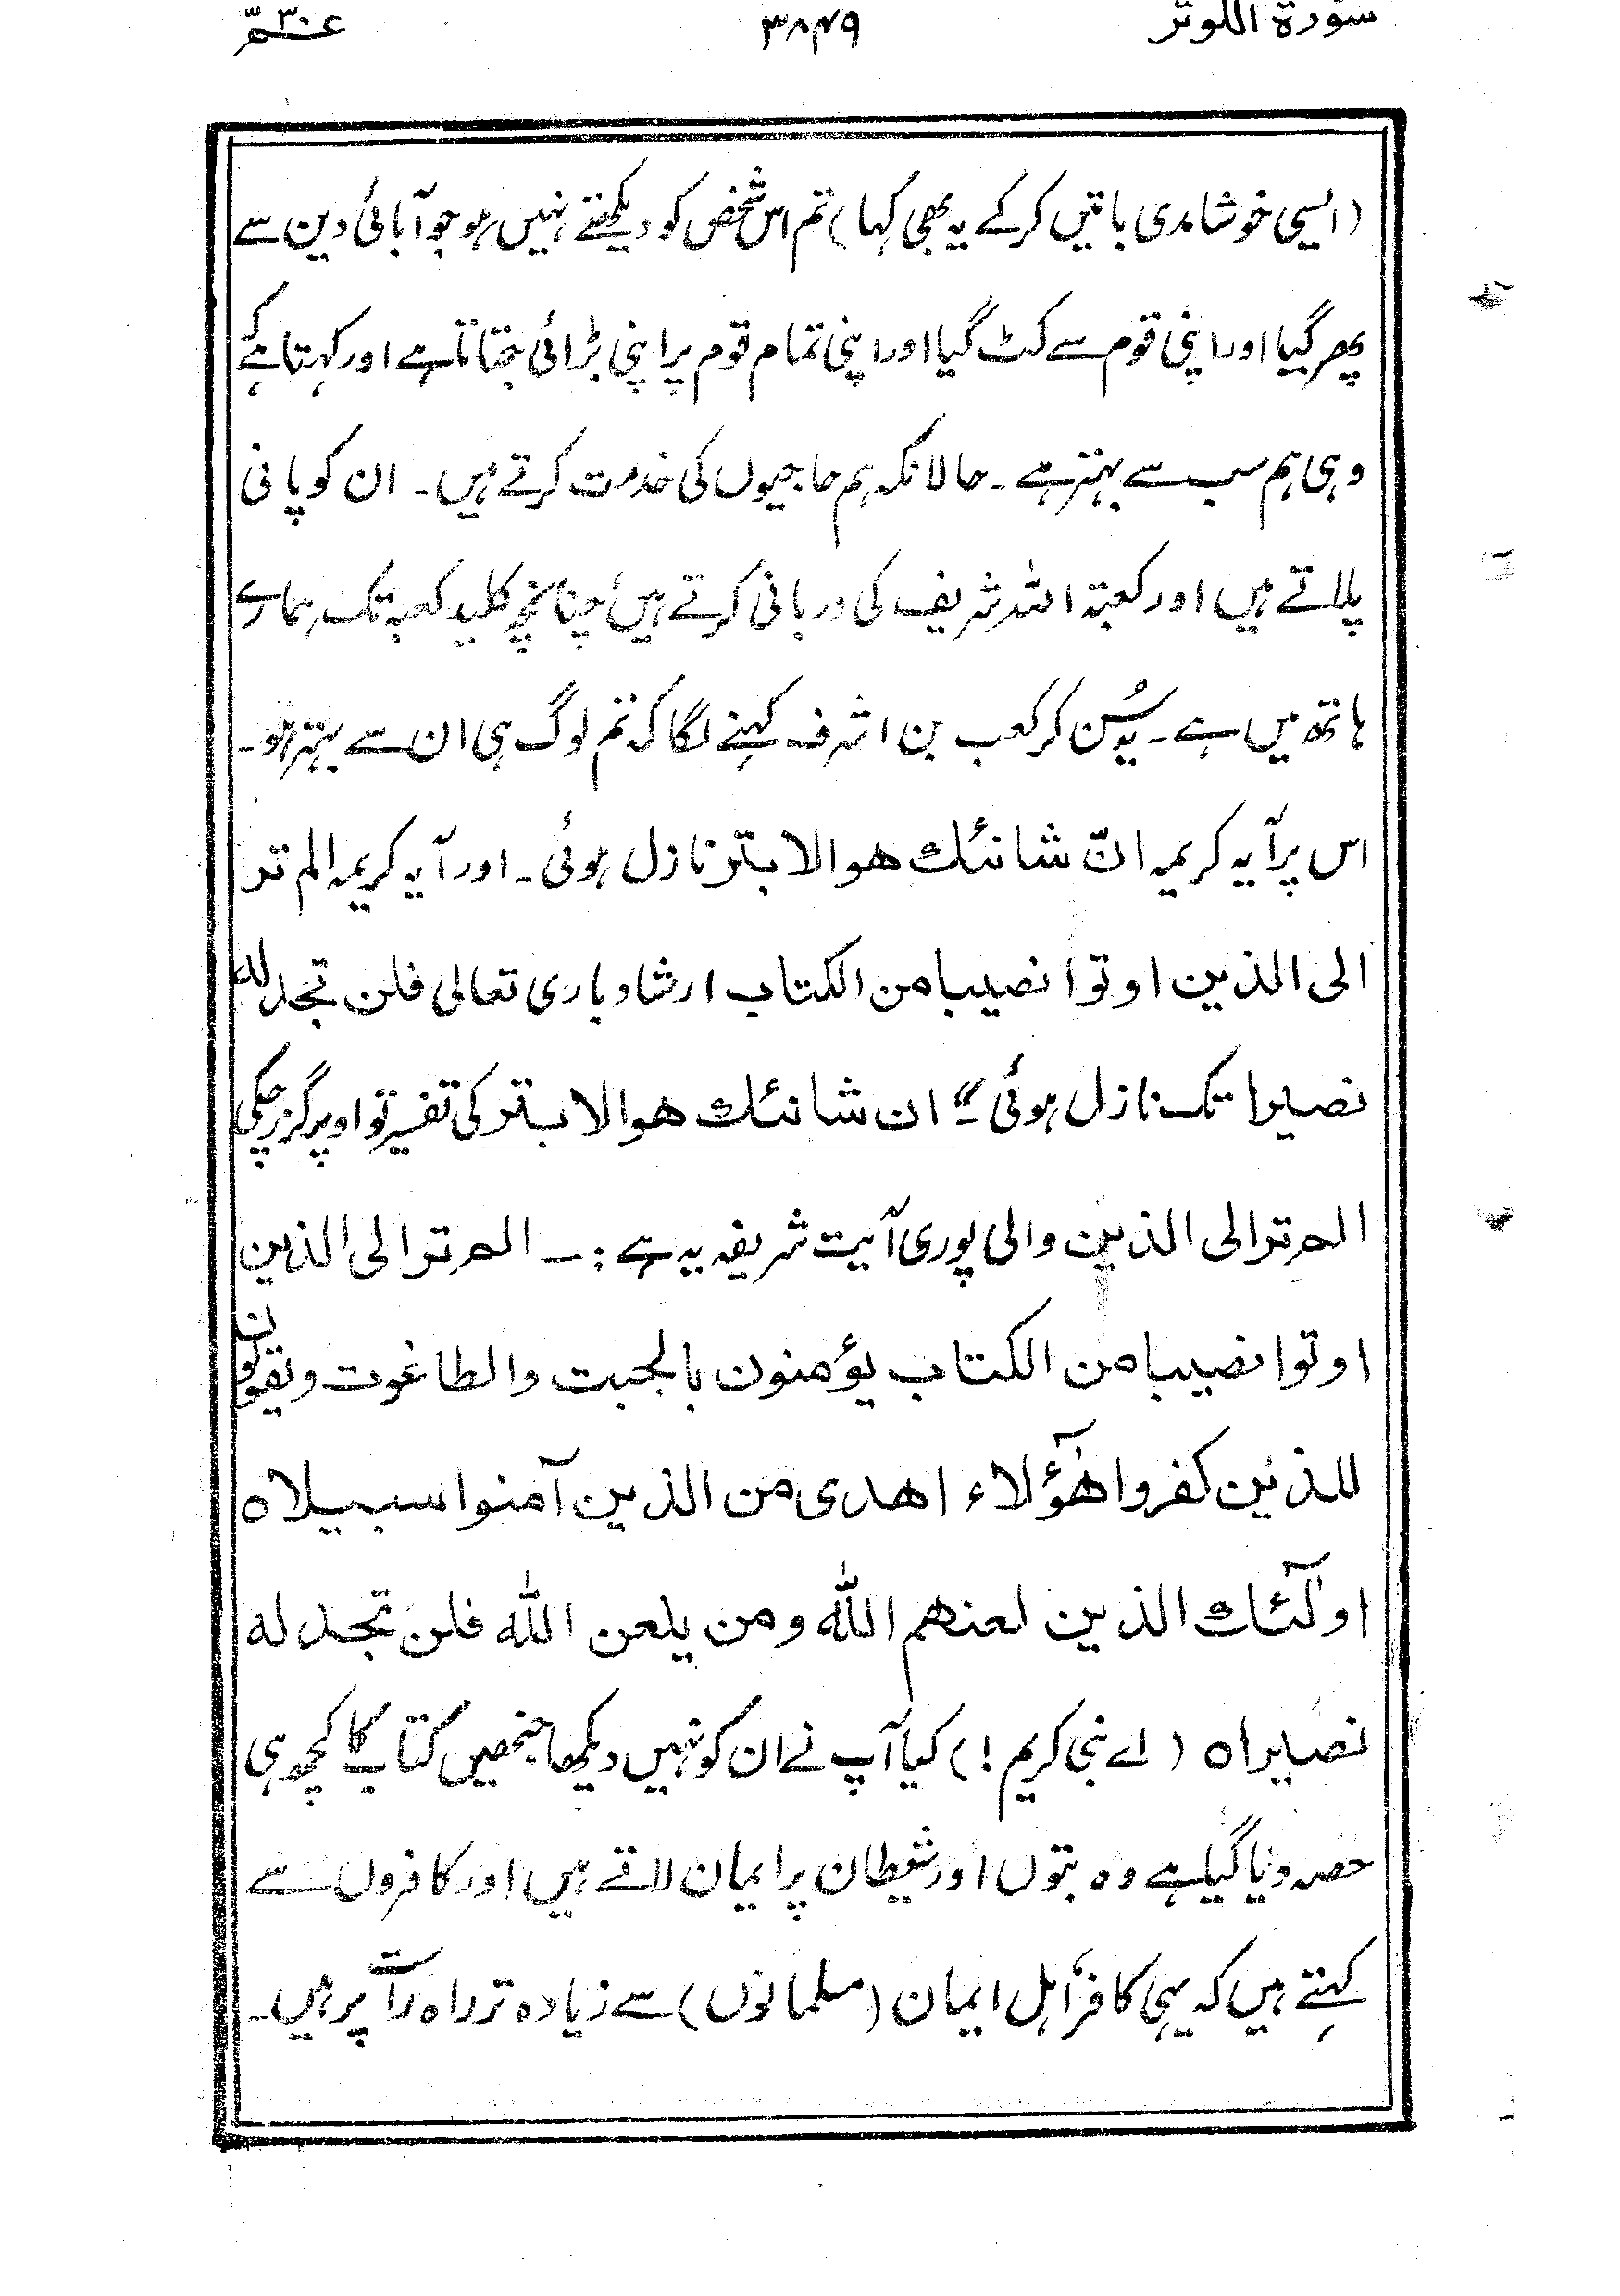 سورة الکوثر ۳۸۴۹ عمّ ۳۰
(ایسی خوشامدی باتیں کرکے یہ بھی کہا) تم اس شخص کو دیکھتے نہیں ہو جو آبائی دین سے
پھر گیا اور اپنی قوم سے کٹ گیا اور اپنی تمام قوم پر اپنی بڑائی جتاتا ہے اور کہتا ہے کہ
وہی ہم سب سے بہتر ہے۔ حالانکہ ہم حاجیوں کی خدمت کرتے ہیں۔ ان کو پانی
پلاتے ہیں اور کعبتہ اللہ شریف کی دربانی کرتے ہیں چنانچہ کلید کعبہ تک ہمارے
ہاتھ میں ہے۔ یہ سُن کر کعب بن اشرف کہنے لگا کہ تم لوگ ہی ان سے بہتر ہو۔
اس پر آیہ کریمہ انّ شانئك هو الابتر نازل ہوئی۔ اور آیہ کریمہ الم تر
الی الذین اوتوا نصیبا من الکتاب ارشاد باری تعالی فلن تجد له
نصیرا تک نازل ہوئی"۔ ان شانئك هو الابتر کی تفسیر تو اوپر گزر چکی
الم تر الی الذین والی پوری آیت شریفہ یہ ہے :۔ الم تر الی الذین
اوتوا نصیبا من الکتاب یؤمنون بالجبت والطاغوت ویقولون
للذین کفروا هٰٓؤلاء اهدی من الذین آمنوا سبیلا ه
اولٰٓئك الذین لعنهم اللّٰه ومن یلعن اللّٰه فلن تجد له
نصیرا ه (اے نبی کریم!) کیا آپ نے ان کو نہیں دیکھا جنھیں کتاب کا کچھ ہی
حصہ دیا گیا ہے وہ بتوں اور شیطان پر ایمان لاتے ہیں اور کافروں سے
کہتے ہیں کہ یہی کافر اہل ایمان (مسلمانوں) سے زیادہ تر راہ راست پر ہیں۔